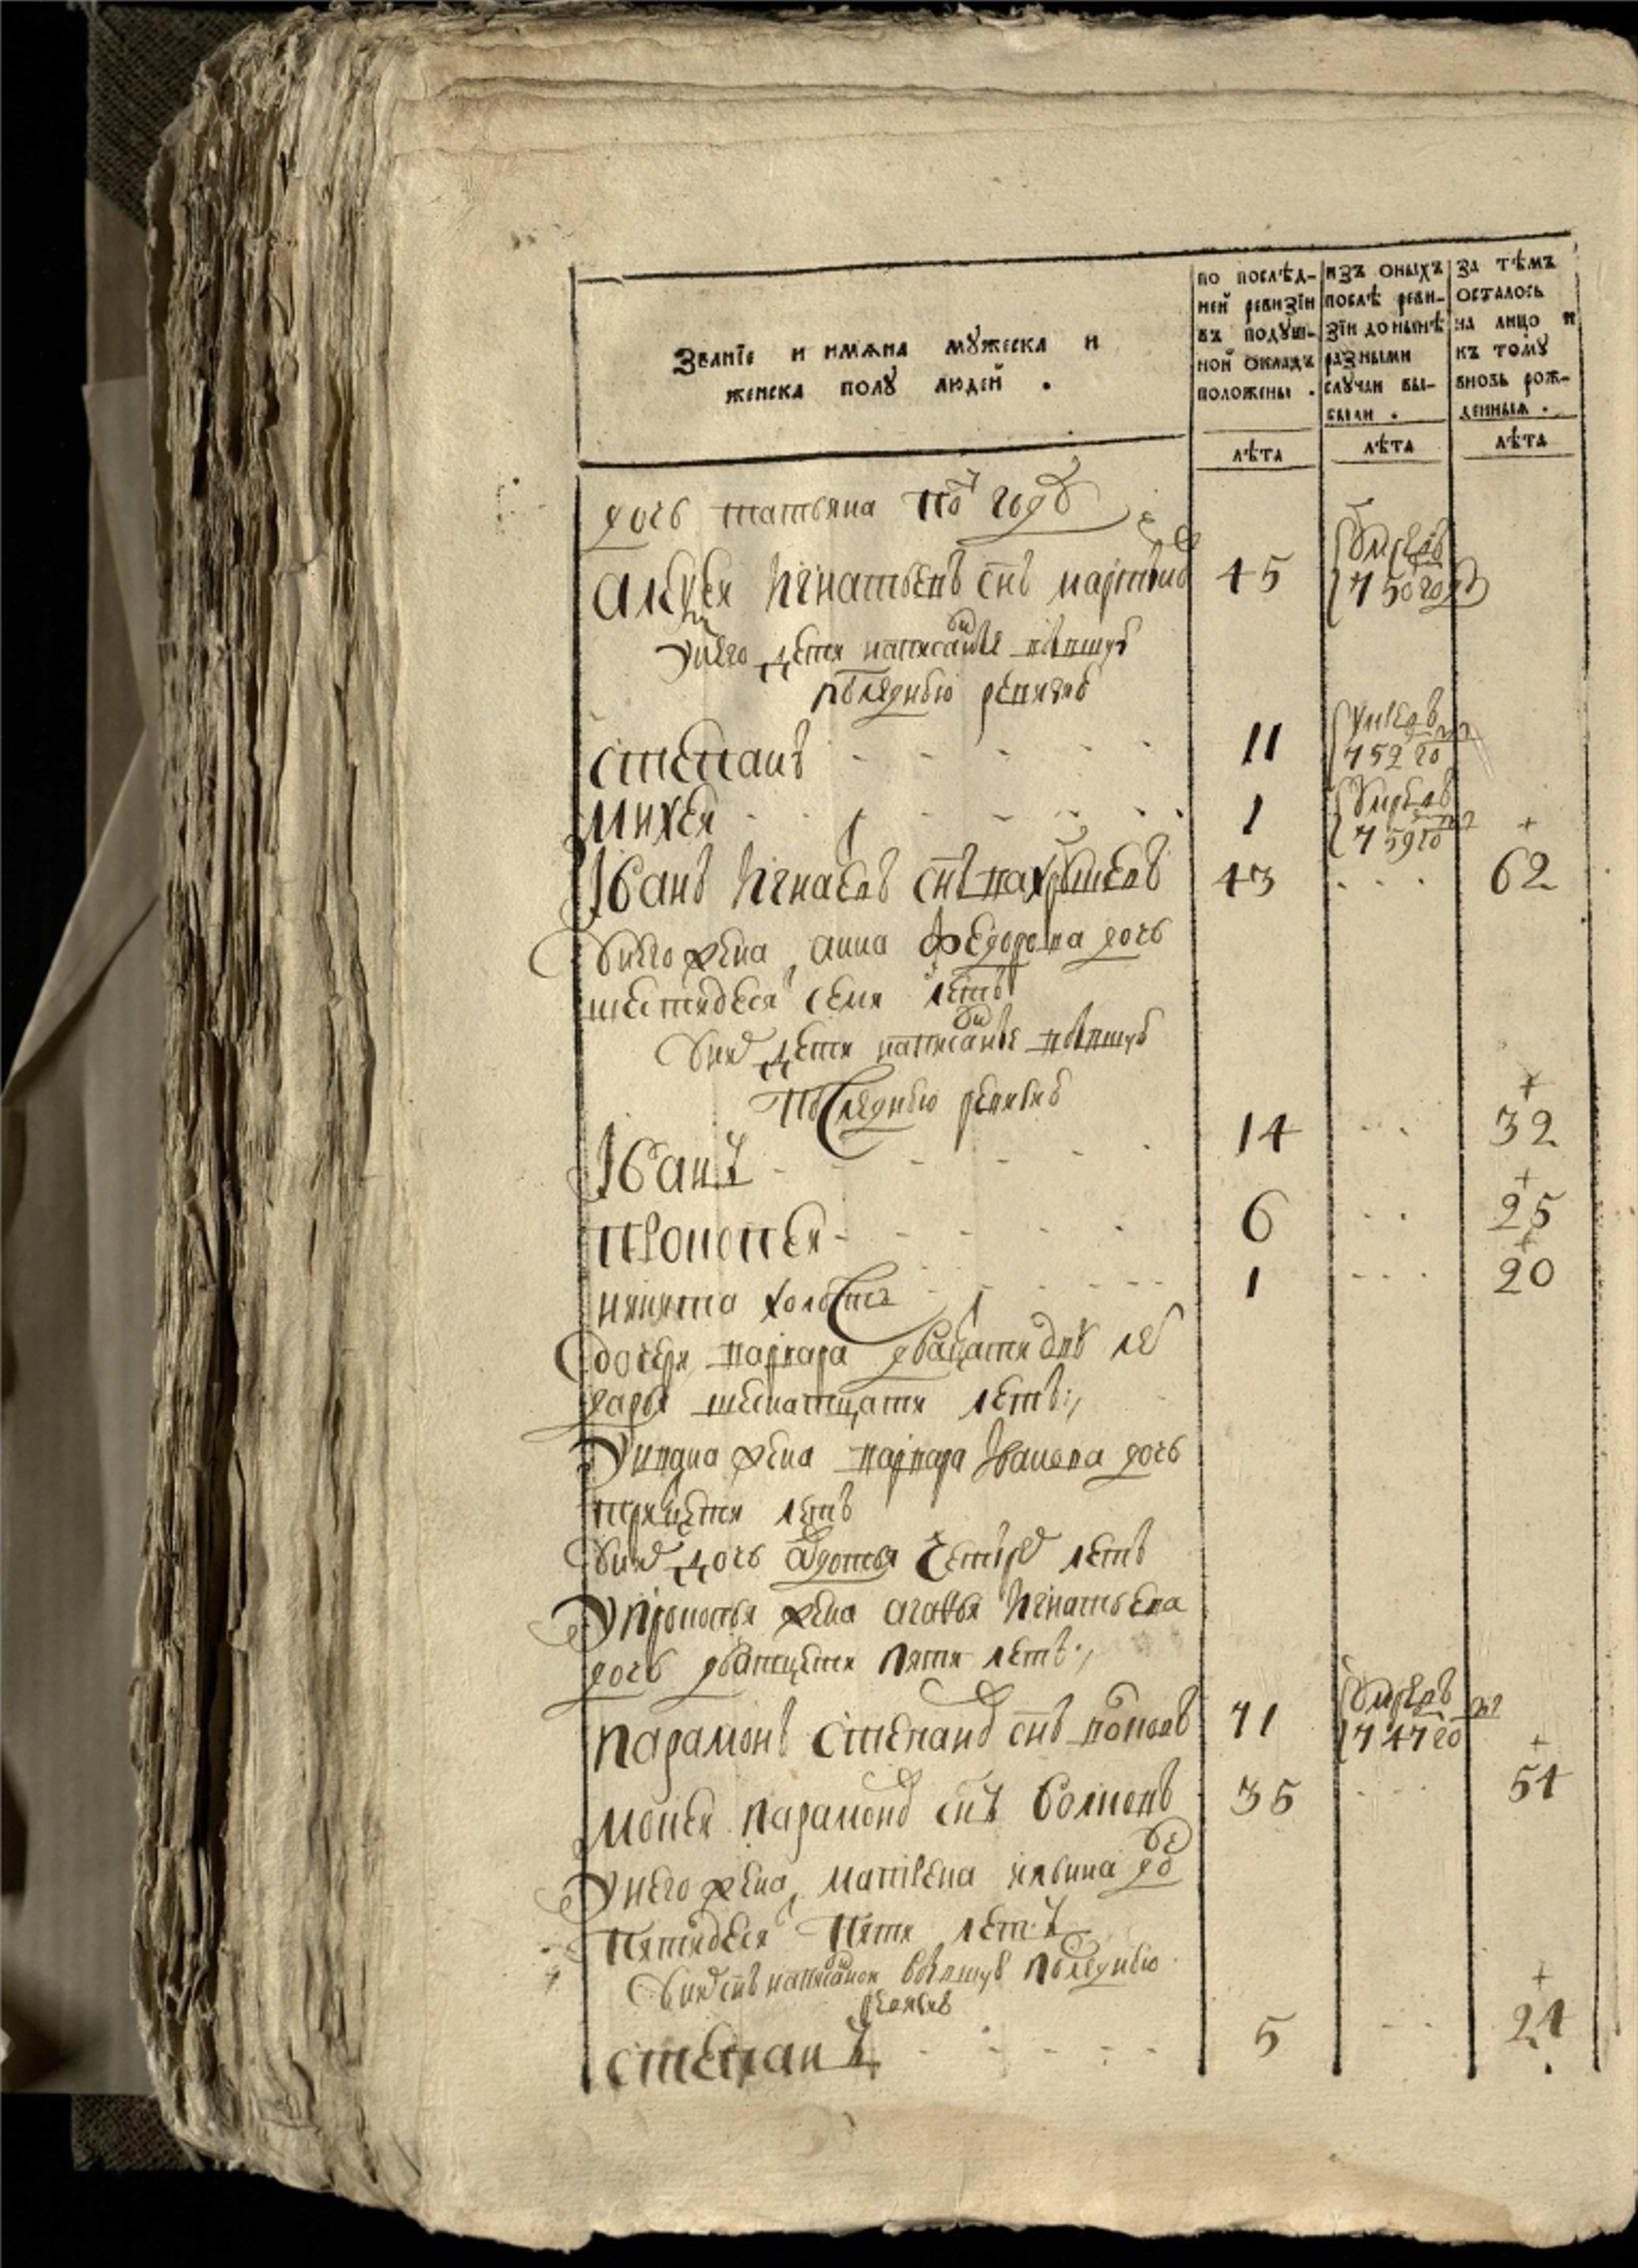 Званїе и имѧна мꙋжеска и
женска полꙋ людей .
по послѣд-
ней ревизїи
въ подꙋш-
ной окладъ
положены .
изъ оныхъ
послѣ реви-
зїи до нынѣ
разными
слꙋчаи вы-
были .
за тѣмъ
осталось
на лицо и
къ тому
вновь рож-
денныя .
лѣта
лѣта
лѣта
дочь татьяна по году
Алѣксѣи Игнатьевъ снъ 45 умре въ 750 году
у него дети написанные въ пшую
последнюю ревизию
степанъ 11 умре въ 752 го
михеи 1 умре въ 759 го
Iванъ Игнаевъ снъ 43 62
у него жена анна федорова дочь
шестидеся семи летъ
у них дети написаные въ пшую
последнюю ревизию
Iванъ 14 32
прокопеи 6 25
никита холостъ 1 20
дочери варвара дватцати дву ле
дарья шеснатцати летъ
у ивана жена варвара Iванова дочь
тритцети летъ
у них дочь авдотья четыре летъ
у прокопья жена агафья Игнатьева
дочь дватцети пяти летъ
парамонъ степано снъ поповъ 71 умре въ 747 го
мокеи парамоно снъ 35 54
у него жена матрена дочь
пятидеся пяти летъ
у них снъ написанои въ пшую последнюю
ревизию
степанъ 5 24